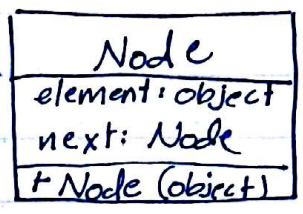 Node
element: object
next: Node
+ Node (object)